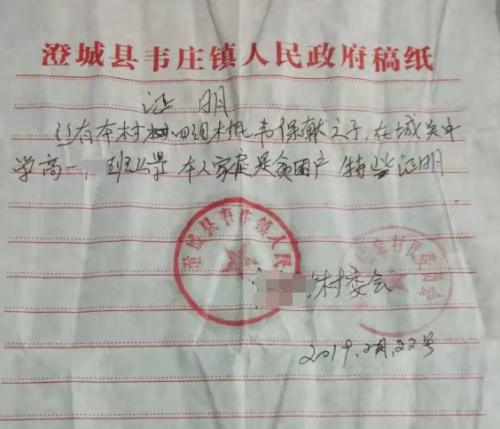 澄城县韦庄镇人民政府稿纸
证 明
兹有本村四组村民韦保献之子,在城关中
学高一、班上学 本人家庭是贫困户 特此证明
澄城县韦庄镇人民
村民委员会
村委会
2019.2月.22号